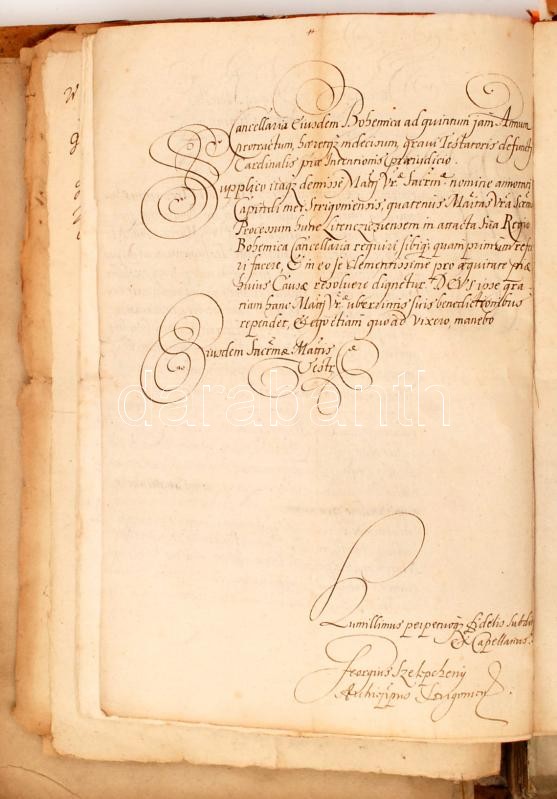 Cancellaria Eiusdem Bohemica ad quintum jam Annum
protractum, haeretq; indecisum, gravi Testatoris defuncti
Cardinalis piae Intentionis praejudicio.
Supplico itaq; demisse Matti Vrae Sacrme nomine annotati
Capituli mei Strigoniensis, quatenus Maitas Vra Sacrma
Processum hunc in attacta Sua Regio
Bohemica Cancellaria requiri sibiq; quam primum refer
ri facere, & in eo se clementissime pro aequitate
huius Causae resolvere dignetur. DEUS ipse gra
tiam hanc Matti Vrae uberrimis suis benedictionibus
rependet, & ego etiam quoad vixero, manebo
Eiusdem Sacrmae Mattis
Vestrae
darabanth
Humillimus perpetuoq; fidelis Subditus
et Capellanus.
Georgius Szelepcheny
Archieppus Strigonien